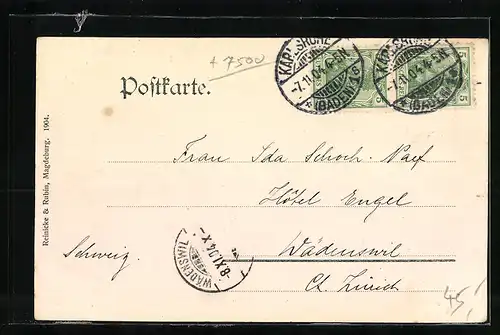 + 7500
KARLSRUHE
-7.11.04.4-5N
*(BADEN)1a
KARLSRUHE
-7.11.04.4-5N
*(BADEN)1a
5
5
Postkarte.
Reinicke & Rubin, Magdeburg. 1904.
Frau Ida Schoch-Naef
Hôtel Engel
Schweiz.
Wädenswil
Ct. Zürich
WÄDENSWIL
-8.XI.04.X-
45.